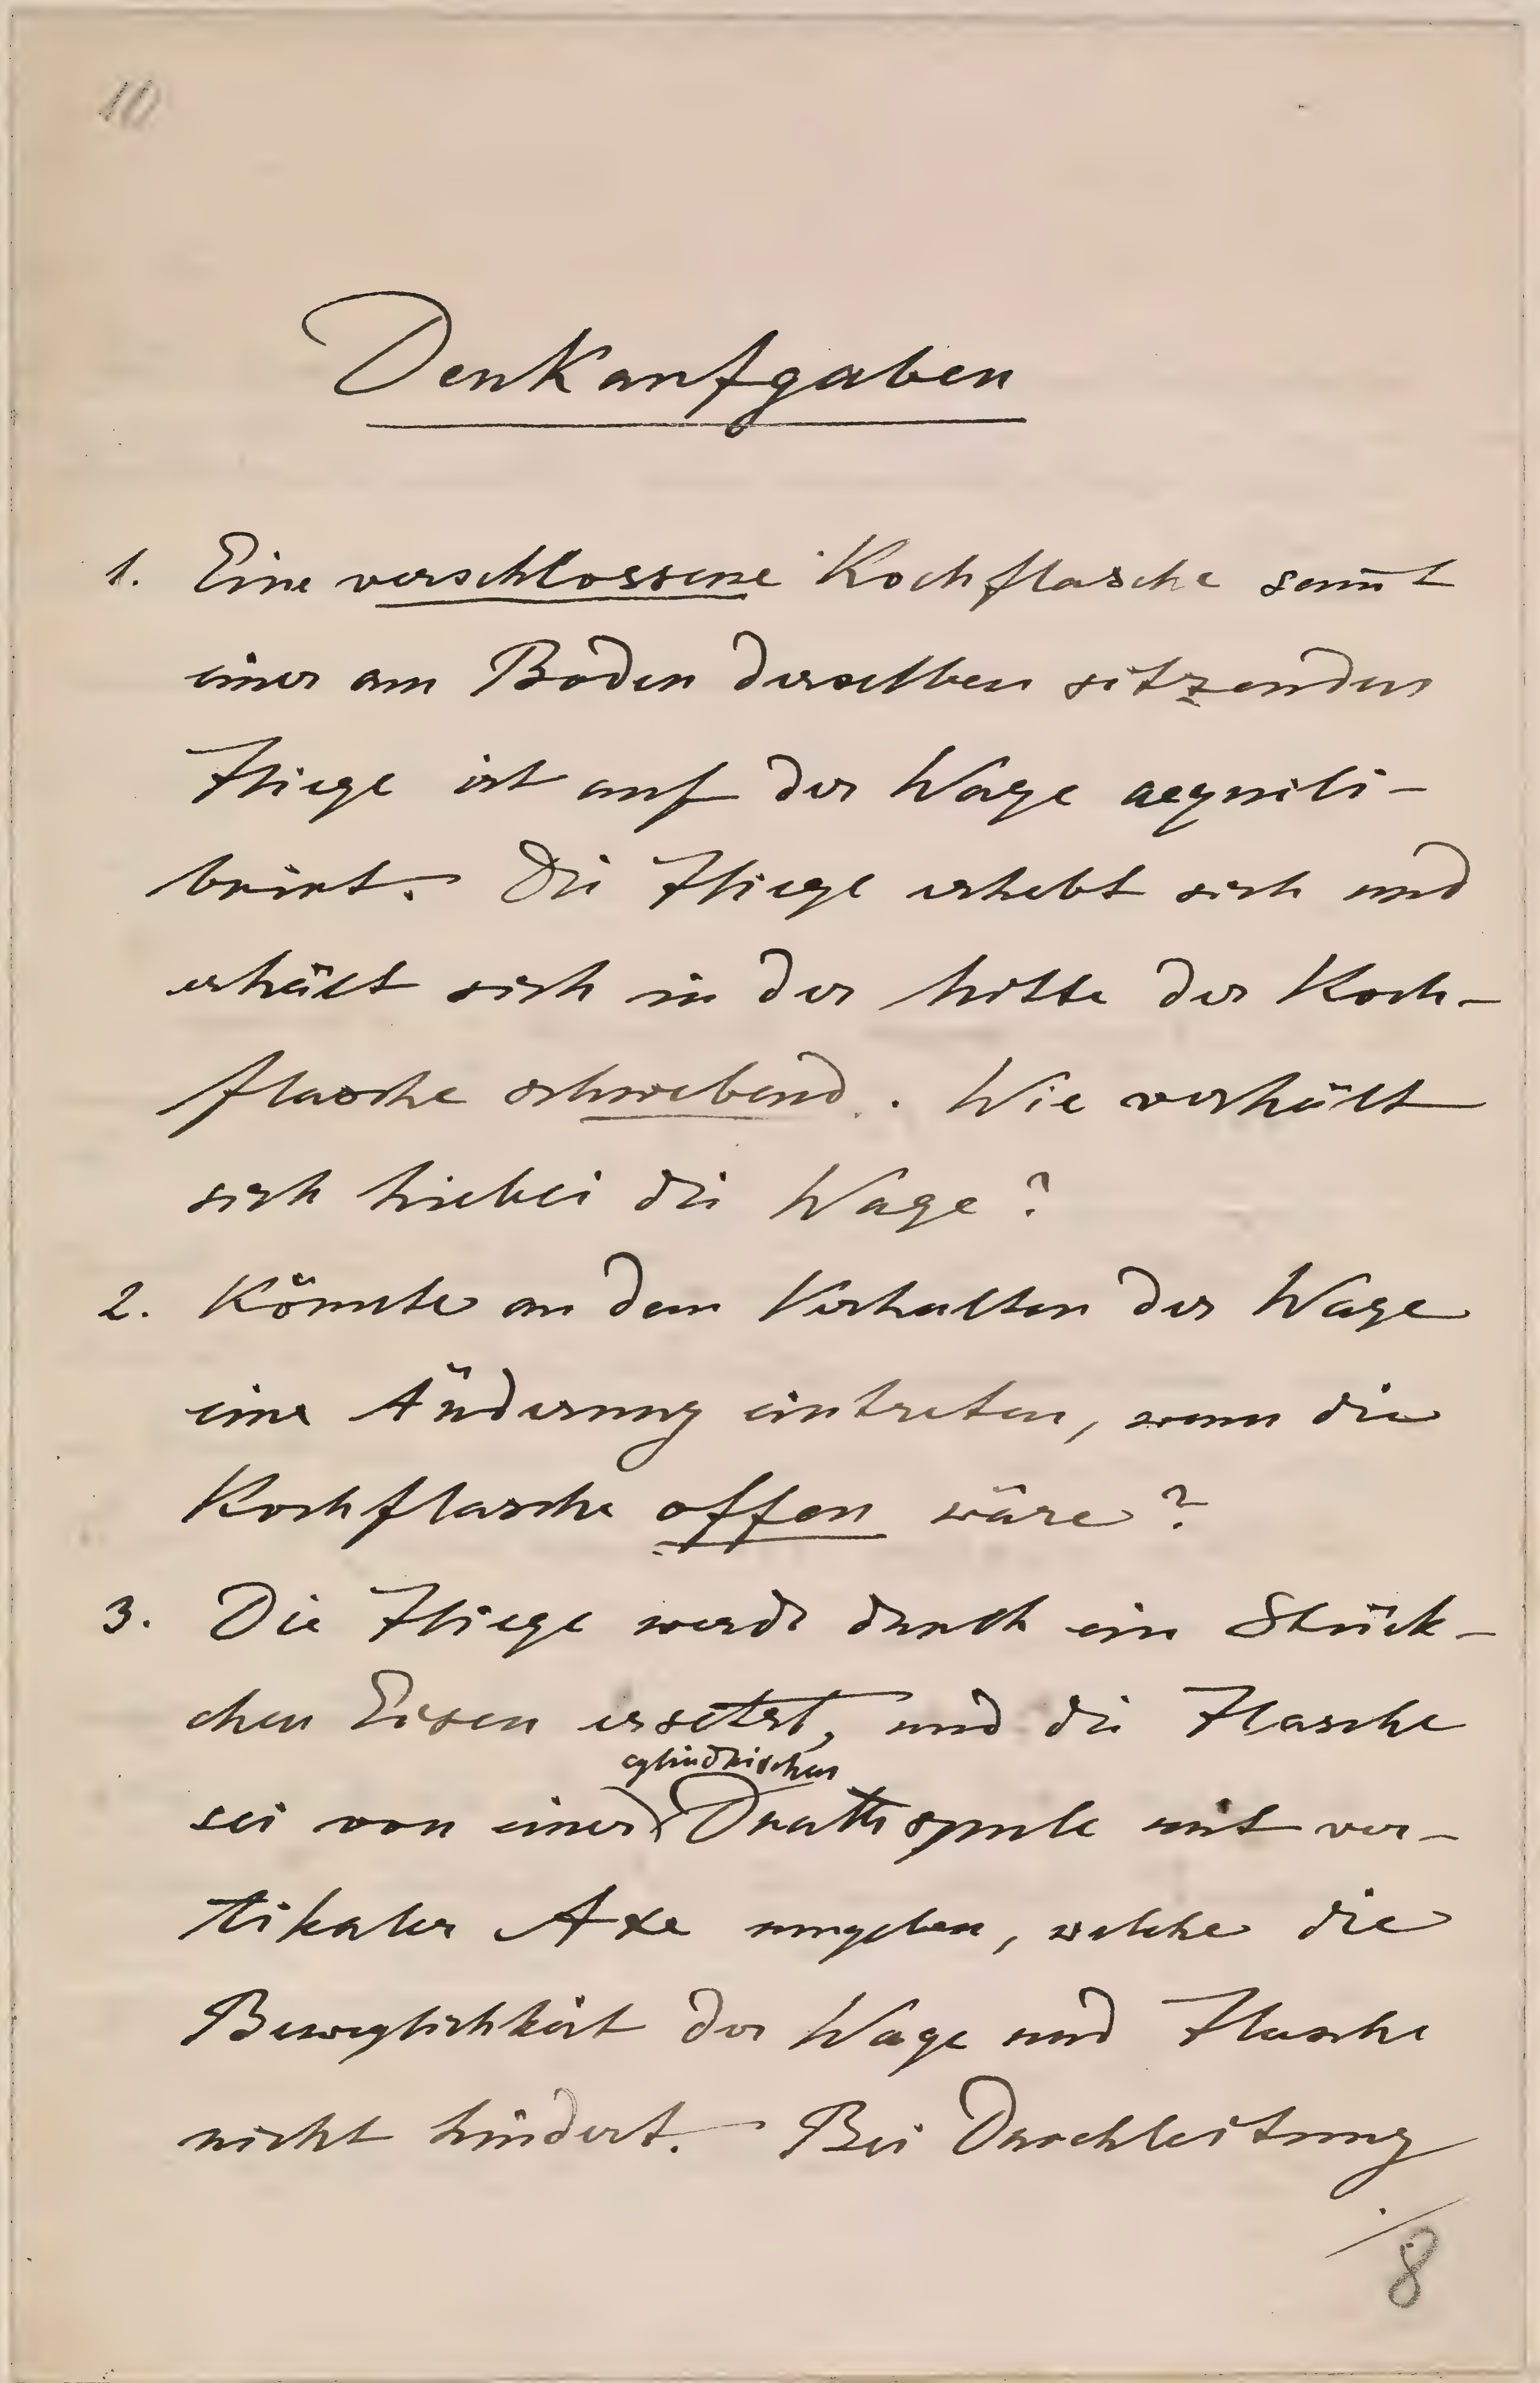 10
Denkaufgaben
1. Eine verschlossene Kochflasche sam̅t
einer am Boden derselben sitzenden
Fliege ist auf der Wage aequili-
brirt. Die Fliege erhebt sich und
erhält sich in der Mitte der Koch-
flasche schwebend. Wie verhält
sich hiebei die Wage?
2. Könnte an dem Verhalten der Wage
eine Änderung eintreten, wenn die
Kochflasche offen wäre?
3. Die Fliege werde durch ein Stück-
chen Eisen ersetzt, und die Flasche
cylindrischen
sei von einer Drathspule mit ver-
tikaler Axe umgeben, welche die
Beweglichkeit der Wage und Flasche
nicht hindert. Bei Durchleitung
8